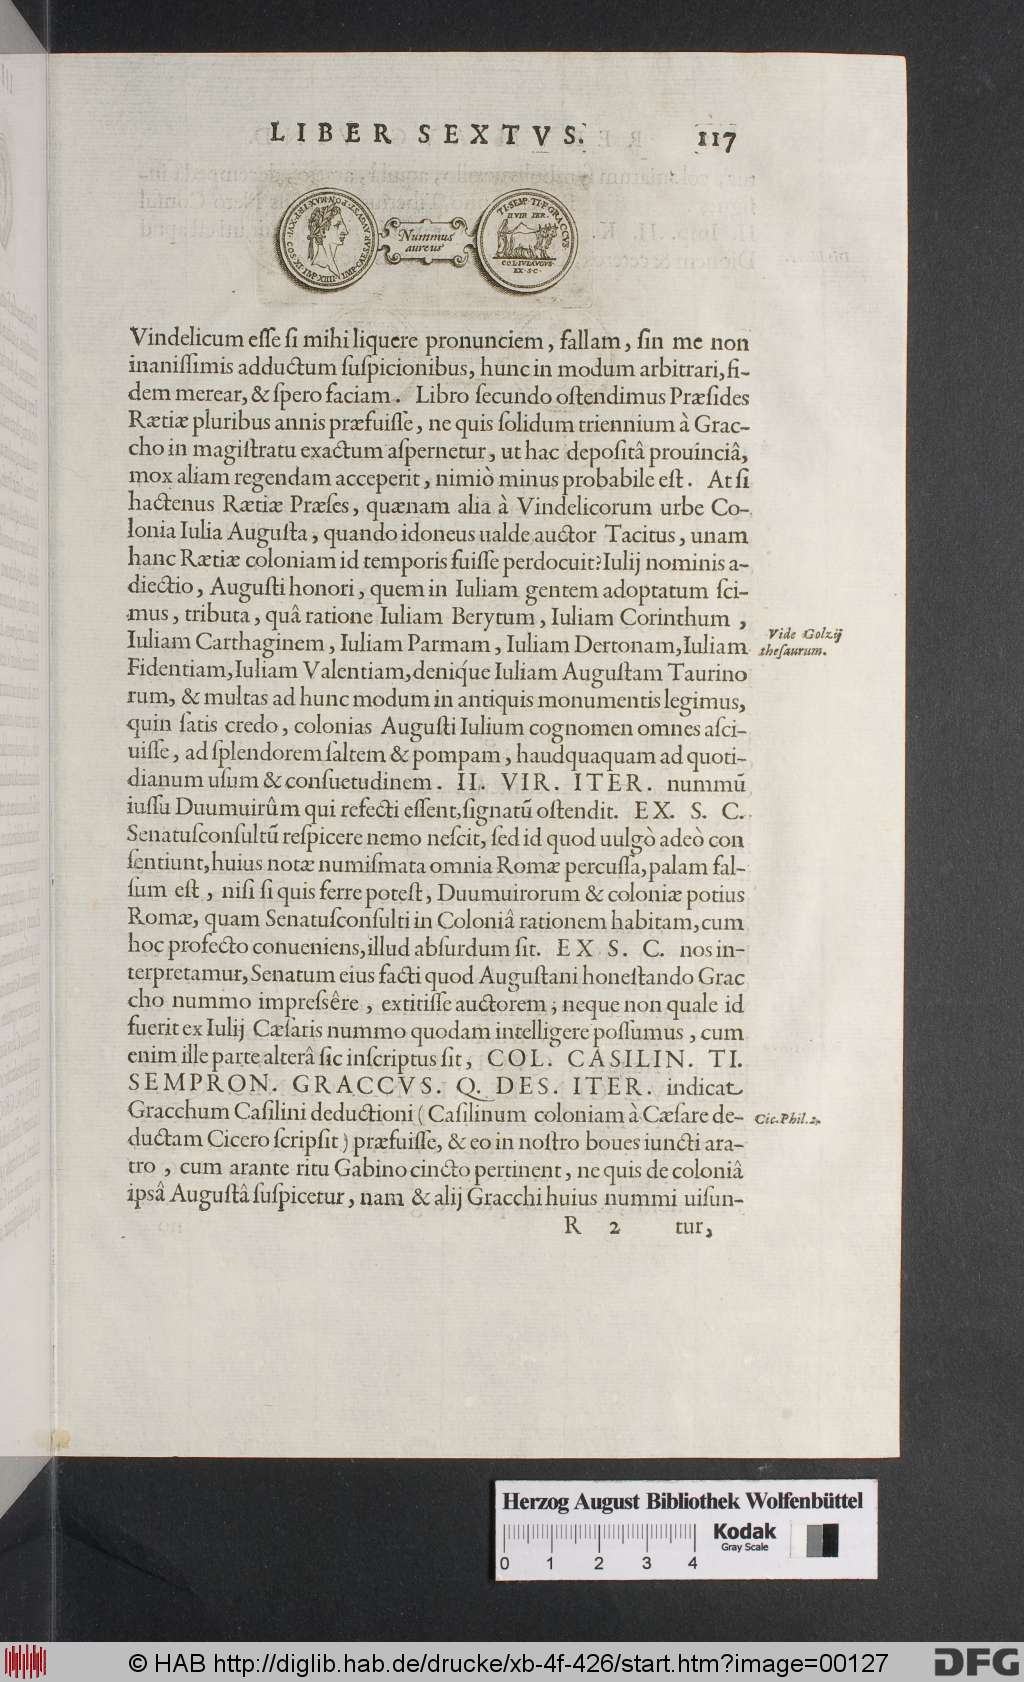 LIBER SEXTVS. 117
Nummus
aureus
TI. SEMP. TI. F. GRACCVS.
II VIR ITER.
COL. IVL AVGVS
EX. S. C.
Vindelicum eſſe ſi mihi liquere pronunciem, fallam, ſin me non
inaniſſimis adductum ſuſpicionibus, hunc in modum arbitrari, fi-
dem merear, & ſpero faciam. Libro ſecundo oſtendimus Præſides
Rætiæ pluribus annis præfuiſſe, ne quis ſolidum triennium à Grac-
cho in magiſtratu exactum aſpernetur, ut hac depoſitâ prouinciâ,
mox aliam regendam acceperit, nimiò minus probabile eſt. At ſi
hactenus Rætiæ Præſes, quænam alia à Vindelicorum urbe Co-
lonia Iulia Auguſta, quando idoneus ualde auctor Tacitus, unam
hanc Rætiæ coloniam id temporis fuiſſe perdocuit? Iulij nominis a-
diectio, Auguſti honori, quem in Iuliam gentem adoptatum ſci-
mus, tributa, quâ ratione Iuliam Berytum, Iuliam Corinthum,
Iuliam Carthaginem, Iuliam Parmam, Iuliam Dertonam, Iuliam
Vide Golzij
theſaurum.
Fidentiam, Iuliam Valentiam, deniq́ue Iuliam Auguſtam Taurino
rum, & multas ad hunc modum in antiquis monumentis legimus,
quin ſatis credo, colonias Auguſti Iulium cognomen omnes aſci-
uiſſe, ad ſplendorem ſaltem & pompam, haudquaquam ad quoti-
dianum uſum & conſuetudinem. II. VIR. ITER. nummū
iuſſu Duumuirûm qui refecti eſſent, ſignatū oſtendit. EX. S. C.
Senatuſconſultū reſpicere nemo neſcit, ſed id quod uulgò adeò con
ſentiunt, huius notæ numiſmata omnia Romæ percuſſa, palam fal-
ſum eſt, niſi ſi quis ferre poteſt, Duumuirorum & coloniæ potius
Romæ, quam Senatuſconſulti in Coloniâ rationem habitam, cum
hoc profecto conueniens, illud abſurdum ſit. EX S. C. nos in-
terpretamur, Senatum eius facti quod Auguſtani honeſtando Grac
cho nummo impreſsêre, extitiſſe auctorem; neque non quale id
fuerit ex Iulij Cæſaris nummo quodam intelligere poſſumus, cum
enim ille parte alterâ ſic inſcriptus ſit, COL. CASILIN. TI.
SEMPRON. GRACCVS. Q. DES. ITER. indicat
Gracchum Caſilini deductioni (Caſilinum coloniam à Cæſare de-
Cic. Phil. 2.
ductam Cicero ſcripſit) præfuiſſe, & eo in noſtro boues iuncti ara-
tro, cum arante ritu Gabino cincto pertinent, ne quis de coloniâ
ipsâ Auguſtâ ſuſpicetur, nam & alij Gracchi huius nummi uiſun-
R 2 tur,
Herzog August Bibliothek Wolfenbüttel
Kodak
Gray Scale
0 1 2 3 4
© HAB http://diglib.hab.de/drucke/xb-4f-426/start.htm?image=00127
DFG